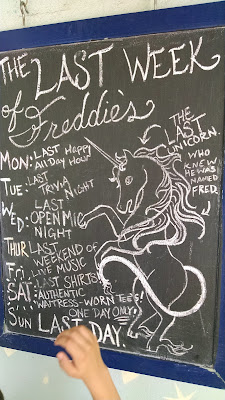 THE LAST WEEK
of Freddie's
MON: LAST HAPPY
ALL DAY HOUR
TUE: LAST
TRIVIA
NIGHT
WED: LAST
OPEN MIC
NIGHT
THUR LAST
WEEKEND OF
FRI: LIVE MUSIC
SAT: LAST SHIRTS!
AUTHENTIC
WAITRESS-WORN TEES!
ONE DAY ONLY!
SUN LAST DAY.
THE
LAST
UNICORN.
WHO
KNEW
HE WAS
NAMED
FRED.